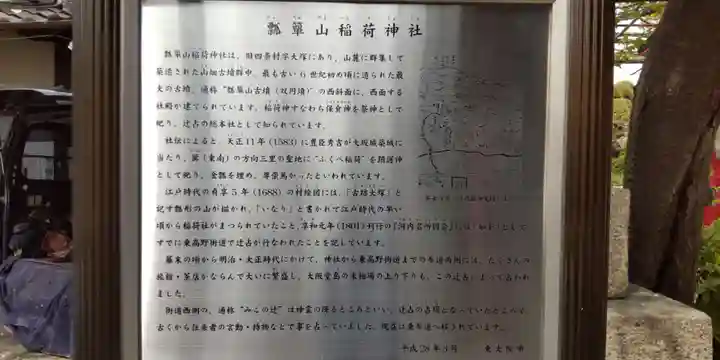 瓢簞山稲荷神社
瓢簞山稲荷神社は、旧四条村字大塚にあり、山麓に群集して
築造された山畑古墳群中、最も古い6世紀初め頃に造られた最
大の古墳、通称“瓢簞山古墳(双円墳)”の西斜面に、西面する
社殿が建てられています。稲荷神すなわち保食神を祭神として
祀り、辻占の総本社として知られています。
社伝によると、天正11年(1583)に豊臣秀吉が大坂城築城に
当たり、巽(東南)の方向三里の聖地に“ふくべ稲荷”を鎮護神
として祀り、金瓢を埋め、尊崇篤かったといわれています。
江戸時代の貞享5年(1688)の村絵図には、「古塚大塚」と
記す瓢形の山が描かれ、「いなり」と書かれて江戸時代の早い
頃から稲荷社がまつられていたこと、享和元年(1801)刊行の『河内名所図会』には
すでに東高野街道で辻占が行なわれたことを記しています。
幕末の頃から明治・大正時代にかけて、神社から東高野街道までの参道両側には、たくさんの
旅館・茶店がならんで大いに繁盛し、大阪堂島の米相場の上り下りも、この辻占によって占われ
ました。
街道西側の、通称“みこの辻”は神霊の降るところといい、辻占の占場となっていたところで
古くから往来者の言動・持物などで事を占っていました。現在は東参道へ移されています。
平成28年3月 東大阪市